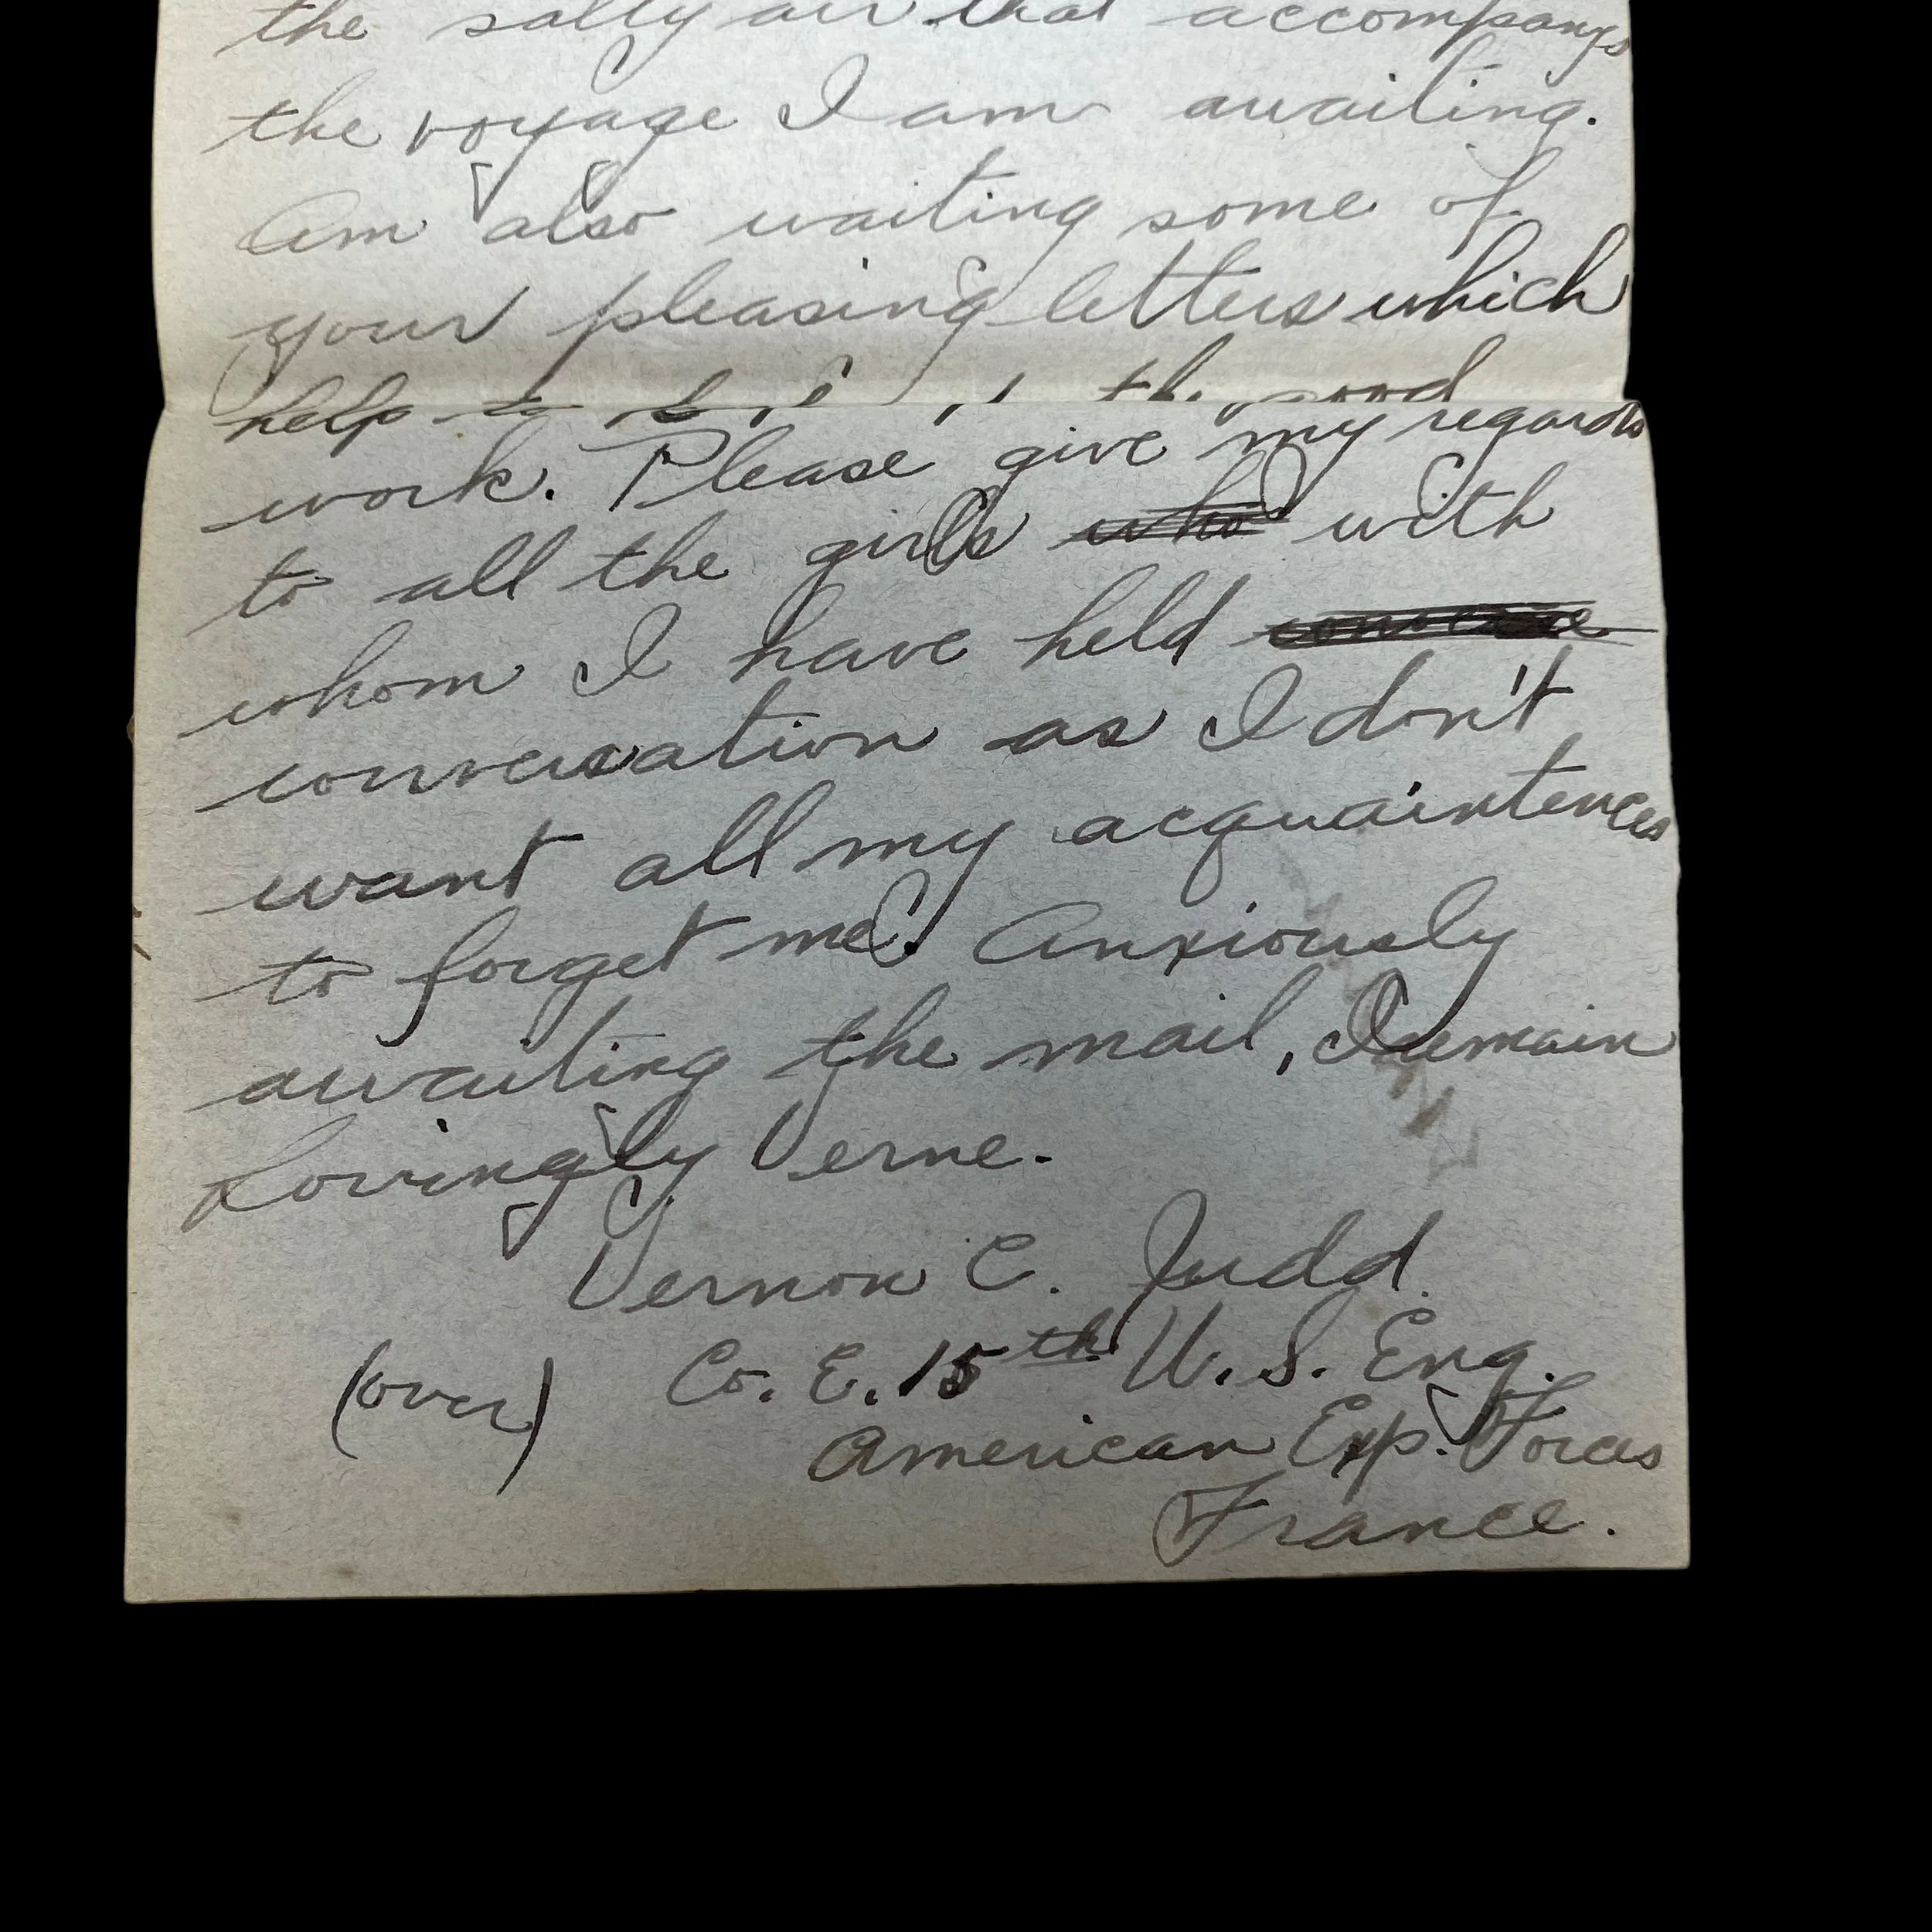 the salty air that accompanys
the voyage I am awaiting.
Am also waiting some of
your pleasing letters which
help to the good
work. Please give my regards
to all the girls who with
whom I have held
conversation as I don't
want all my acquaintences
to forget me. Anxiously
awaiting the mail, I remain
Lovingly Verne.
Vernon C. Judd.
(over) Co. E. 15th U.S. Eng.
American Exp. Forces
France.